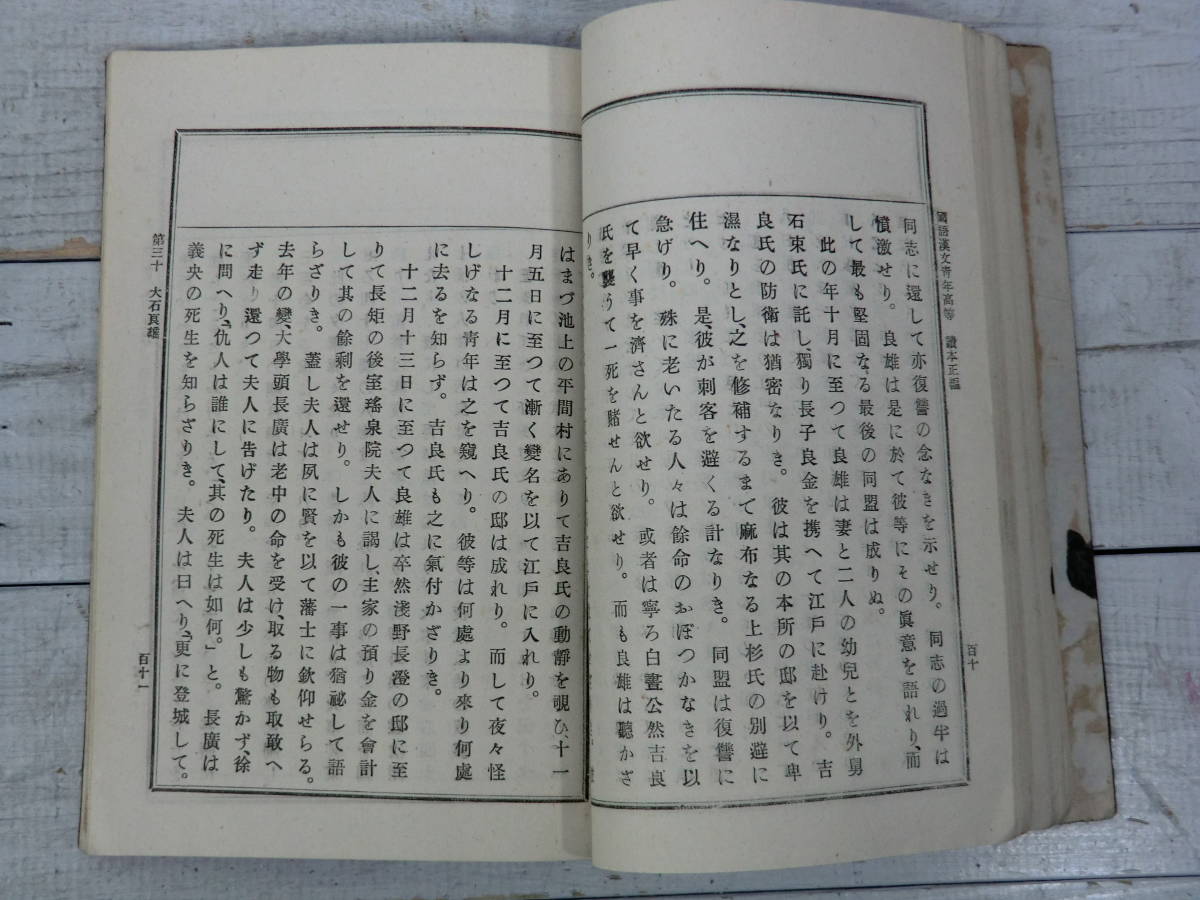 國語漢文青年高等 讀本正編
百十
同志に還して亦復讐の念なきを示せり。 同志の過半は
憤激せり。 良雄は是に於て彼等にその眞意を語れり、而
して最も堅固なる最後の同盟は成りぬ。
此の年十月に至つて良雄は妻と二人の幼兒とを外舅
石束氏に託し、獨り長子良金を携へて江戸に赴けり。 吉
良氏の防衛は猶密なりき。 彼は其の本所の邸を以て卑
濕なりとし、之を修補するまで麻布なる上杉氏の別邸に
住へり。 是、彼が刺客を避くる計なりき。 同盟は復讐に
急げり。 殊に老いたる人々は餘命のおぼつかなきを以
て早く事を濟さんと欲せり。 或者は寧ろ白晝公然吉良
氏を襲うて一死を賭せんと欲せり。 而も良雄は聽かざ
りき。
はまづ池上の平間村にありて吉良氏の動靜を覗ひ、十一
月五日に至つて漸く變名を以て江戸に入れり。
十二月に至つて吉良氏の邸は成れり。 而して夜々怪
しげなる靑年は之を窺へり。 彼等は何處より來り何處
に去るを知らず。 吉良氏も之に氣付かざりき。
十二月十三日に至つて良雄は卒然淺野長澄の邸に至
りて長矩の後室瑤泉院夫人に謁し、主家の預り金を會計
して其の餘剩を還せり。 しかも彼の一事は猶祕して語
らざりき。 蓋し夫人は夙に賢を以て藩士に欽仰せらる。
去年の變、大學頭長廣は老中の命を受け、取る物も取敢へ
ず走り還つて夫人に告げたり。 夫人は少しも驚かず、徐
に問へり、「仇人は誰にして、其の死生は如何。」と。 長廣は
義央の死生を知らざりき。 夫人は曰へり、「更に登城して。
第三十 大石良雄
百十一